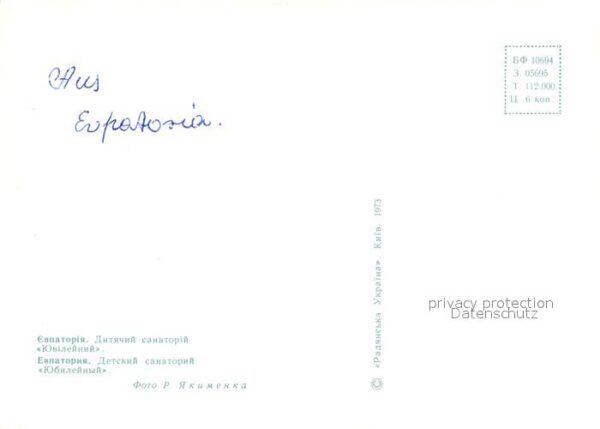 Aus
Evpatoria.
БФ 10694
З. 05695
Т. 112.000
Ц. 6 коп.
«Радянська Україна». Київ. 1973
©
privacy protection
Datenschutz
Євпаторія. Дитячий санаторій
«Ювілейний».
Евпатория. Детский санаторий
«Юбилейный».
Фото Р. Якименка